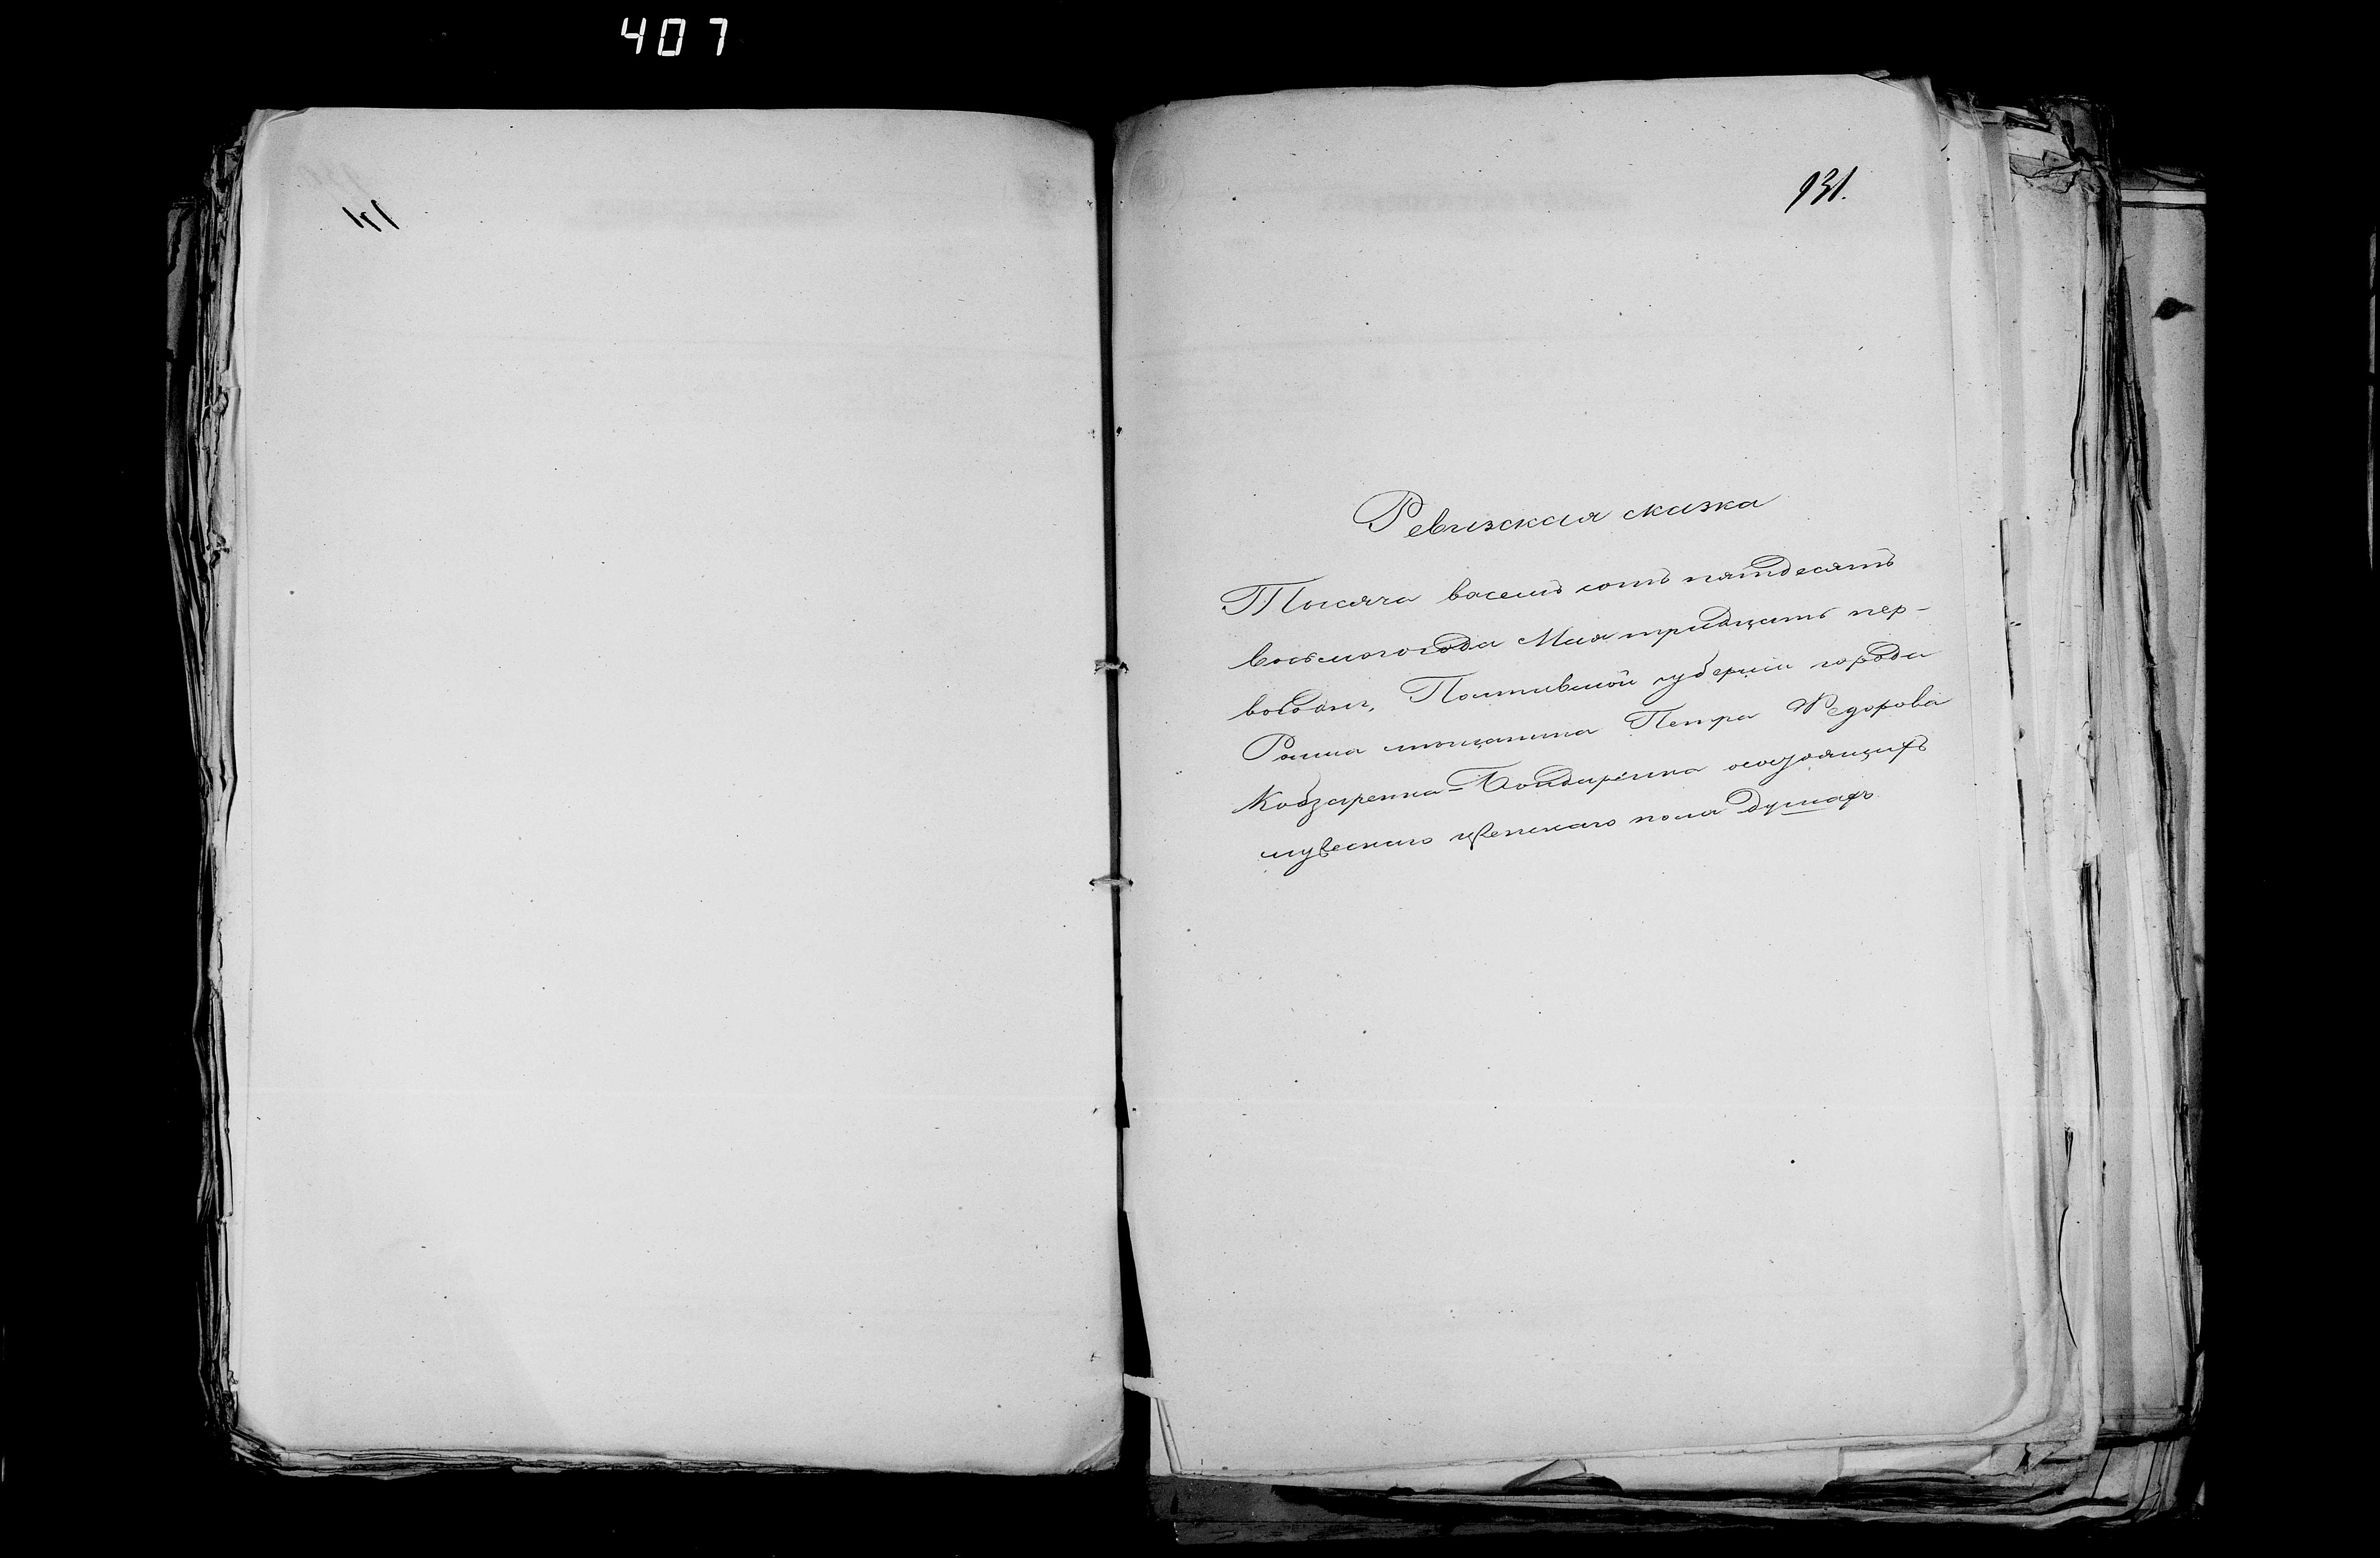 407
931.
Ревизская сказка
Тысяча восемь сотъ пятдесятъ
восьмого года Мая тридцать пер-
вого дня, Полтавской губерніи города
Ромна мещанина Петра Федорова
Кобзаренка-Бондаренка о состоящихъ
мужескаго и женскаго пола душахъ